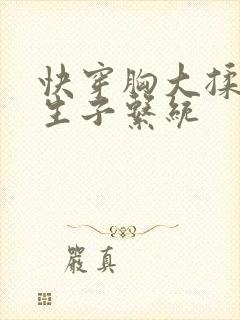 快穿胸大揉
生子系統
嚴真